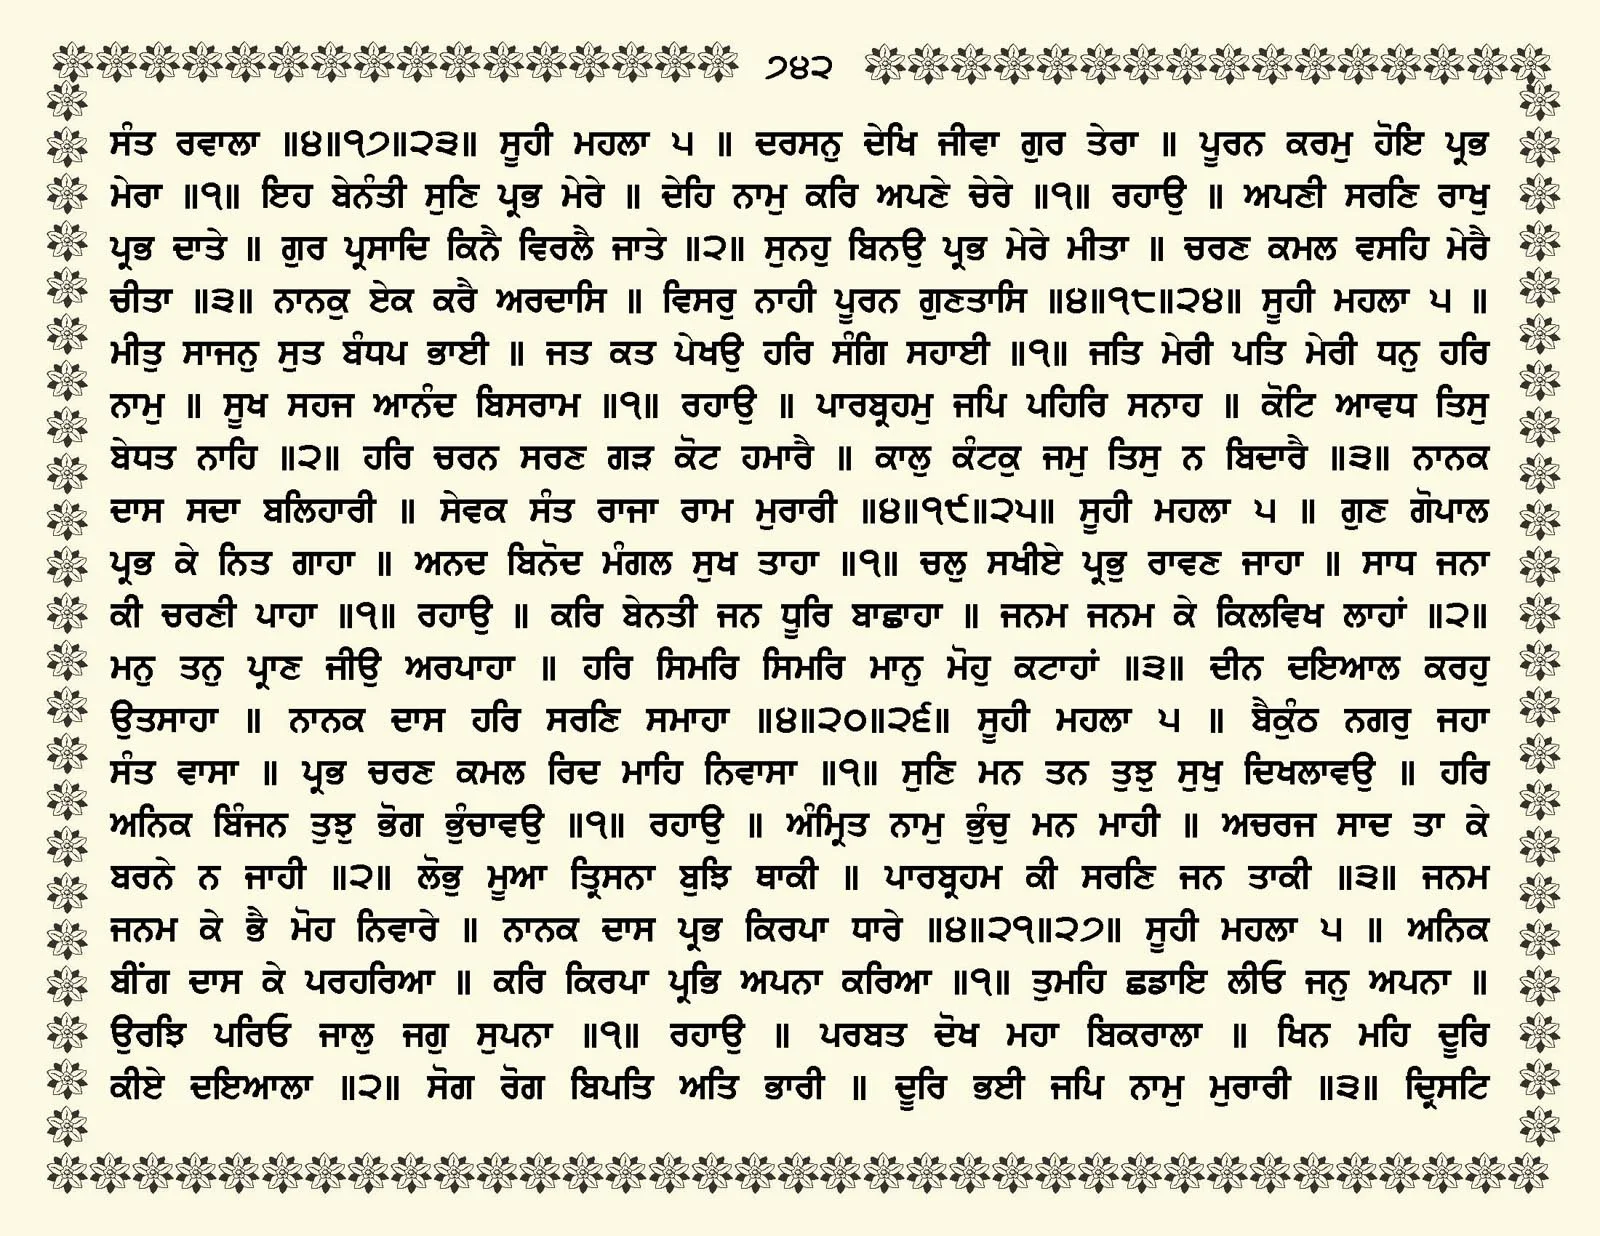 ੭੪੨
ਸੰਤ ਰਵਾਲਾ ॥੪॥੧੭॥੨੩॥ ਸੂਹੀ ਮਹਲਾ ੫ ॥ ਦਰਸਨੁ ਦੇਖਿ ਜੀਵਾ ਗੁਰ ਤੇਰਾ ॥ ਪੂਰਨ ਕਰਮੁ ਹੋਇ ਪ੍ਰਭ
ਮੇਰਾ ॥੧॥ ਇਹ ਬੇਨੰਤੀ ਸੁਣਿ ਪ੍ਰਭ ਮੇਰੇ ॥ ਦੇਹਿ ਨਾਮੁ ਕਰਿ ਅਪਣੇ ਚੇਰੇ ॥੧॥ ਰਹਾਉ ॥ ਅਪਣੀ ਸਰਣਿ ਰਾਖੁ
ਪ੍ਰਭ ਦਾਤੇ ॥ ਗੁਰ ਪ੍ਰਸਾਦਿ ਕਿਨੈ ਵਿਰਲੈ ਜਾਤੇ ॥੨॥ ਸੁਨਹੁ ਬਿਨਉ ਪ੍ਰਭ ਮੇਰੇ ਮੀਤਾ ॥ ਚਰਣ ਕਮਲ ਵਸਹਿ ਮੇਰੈ
ਚੀਤਾ ॥੩॥ ਨਾਨਕੁ ਏਕ ਕਰੈ ਅਰਦਾਸਿ ॥ ਵਿਸਰੁ ਨਾਹੀ ਪੂਰਨ ਗੁਣਤਾਸਿ ॥੪॥੧੮॥੨੪॥ ਸੂਹੀ ਮਹਲਾ ੫ ॥
ਮੀਤੁ ਸਾਜਨੁ ਸੁਤ ਬੰਧਪ ਭਾਈ ॥ ਜਤ ਕਤ ਪੇਖਉ ਹਰਿ ਸੰਗਿ ਸਹਾਈ ॥੧॥ ਜਤਿ ਮੇਰੀ ਪਤਿ ਮੇਰੀ ਧਨੁ ਹਰਿ
ਨਾਮੁ ॥ ਸੂਖ ਸਹਜ ਆਨੰਦ ਬਿਸਰਾਮ ॥੧॥ ਰਹਾਉ ॥ ਪਾਰਬ੍ਰਹਮੁ ਜਪਿ ਪਹਿਰਿ ਸਨਾਹ ॥ ਕੋਟਿ ਆਵਧ ਤਿਸੁ
ਬੇਧਤ ਨਾਹਿ ॥੨॥ ਹਰਿ ਚਰਨ ਸਰਣ ਗੜ ਕੋਟ ਹਮਾਰੈ ॥ ਕਾਲੁ ਕੰਟਕੁ ਜਮੁ ਤਿਸੁ ਨ ਬਿਦਾਰੈ ॥੩॥ ਨਾਨਕ
ਦਾਸ ਸਦਾ ਬਲਿਹਾਰੀ ॥ ਸੇਵਕ ਸੰਤ ਰਾਜਾ ਰਾਮ ਮੁਰਾਰੀ ॥੪॥੧੯॥੨੫॥ ਸੂਹੀ ਮਹਲਾ ੫ ॥ ਗੁਣ ਗੋਪਾਲ
ਪ੍ਰਭ ਕੇ ਨਿਤ ਗਾਹਾ ॥ ਅਨਦ ਬਿਨੋਦ ਮੰਗਲ ਸੁਖ ਤਾਹਾ ॥੧॥ ਚਲੁ ਸਖੀਏ ਪ੍ਰਭੁ ਰਾਵਣ ਜਾਹਾ ॥ ਸਾਧ ਜਨਾ
ਕੀ ਚਰਣੀ ਪਾਹਾ ॥੧॥ ਰਹਾਉ ॥ ਕਰਿ ਬੇਨਤੀ ਜਨ ਧੂਰਿ ਬਾਛਾਹਾ ॥ ਜਨਮ ਜਨਮ ਕੇ ਕਿਲਵਿਖ ਲਾਹਾਂ ॥੨॥
ਮਨੁ ਤਨੁ ਪ੍ਰਾਣ ਜੀਉ ਅਰਪਾਹਾ ॥ ਹਰਿ ਸਿਮਰਿ ਸਿਮਰਿ ਮਾਨੁ ਮੋਹੁ ਕਟਾਹਾਂ ॥੩॥ ਦੀਨ ਦਇਆਲ ਕਰਹੁ
ਉਤਸਾਹਾ ॥ ਨਾਨਕ ਦਾਸ ਹਰਿ ਸਰਣਿ ਸਮਾਹਾ ॥੪॥੨੦॥੨੬॥ ਸੂਹੀ ਮਹਲਾ ੫ ॥ ਬੈਕੁੰਠ ਨਗਰੁ ਜਹਾ
ਸੰਤ ਵਾਸਾ ॥ ਪ੍ਰਭ ਚਰਣ ਕਮਲ ਰਿਦ ਮਾਹਿ ਨਿਵਾਸਾ ॥੧॥ ਸੁਣਿ ਮਨ ਤਨ ਤੁਝੁ ਸੁਖੁ ਦਿਖਲਾਵਉ ॥ ਹਰਿ
ਅਨਿਕ ਬਿੰਜਨ ਤੁਝੁ ਭੋਗ ਭੁੰਚਾਵਉ ॥੧॥ ਰਹਾਉ ॥ ਅੰਮ੍ਰਿਤ ਨਾਮੁ ਭੁੰਚੁ ਮਨ ਮਾਹੀ ॥ ਅਚਰਜ ਸਾਦ ਤਾ ਕੇ
ਬਰਨੇ ਨ ਜਾਹੀ ॥੨॥ ਲੋਭੁ ਮੂਆ ਤ੍ਰਿਸਨਾ ਬੁਝਿ ਥਾਕੀ ॥ ਪਾਰਬ੍ਰਹਮ ਕੀ ਸਰਣਿ ਜਨ ਤਾਕੀ ॥੩॥ ਜਨਮ
ਜਨਮ ਕੇ ਭੈ ਮੋਹ ਨਿਵਾਰੇ ॥ ਨਾਨਕ ਦਾਸ ਪ੍ਰਭ ਕਿਰਪਾ ਧਾਰੇ ॥੪॥੨੧॥੨੭॥ ਸੂਹੀ ਮਹਲਾ ੫ ॥ ਅਨਿਕ
ਬੀਂਗ ਦਾਸ ਕੇ ਪਰਹਰਿਆ ॥ ਕਰਿ ਕਿਰਪਾ ਪ੍ਰਭਿ ਅਪਨਾ ਕਰਿਆ ॥੧॥ ਤੁਮਹਿ ਛਡਾਇ ਲੀਓ ਜਨੁ ਅਪਨਾ ॥
ਉਰਝਿ ਪਰਿਓ ਜਾਲੁ ਜਗੁ ਸੁਪਨਾ ॥੧॥ ਰਹਾਉ ॥ ਪਰਬਤ ਦੋਖ ਮਹਾ ਬਿਕਰਾਲਾ ॥ ਖਿਨ ਮਹਿ ਦੂਰਿ
ਕੀਏ ਦਇਆਲਾ ॥੨॥ ਸੋਗ ਰੋਗ ਬਿਪਤਿ ਅਤਿ ਭਾਰੀ ॥ ਦੂਰਿ ਭਈ ਜਪਿ ਨਾਮੁ ਮੁਰਾਰੀ ॥੩॥ ਦ੍ਰਿਸਟਿ